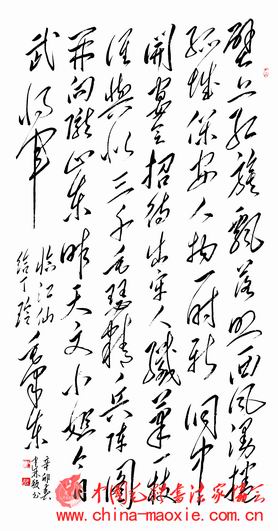 壁上红旗飘落照西风漫捲
孤城保安人物一时新洞中
開宴会招待出牢人纖筆一枝
谁與似三千毛瑟精兵阵圖
開向陇山东昨天文小姐今日
武将军
临江仙
给丁玲
毛泽东
辛卯春
中国毛体书法家协会
www.china-maoxie.com.cn